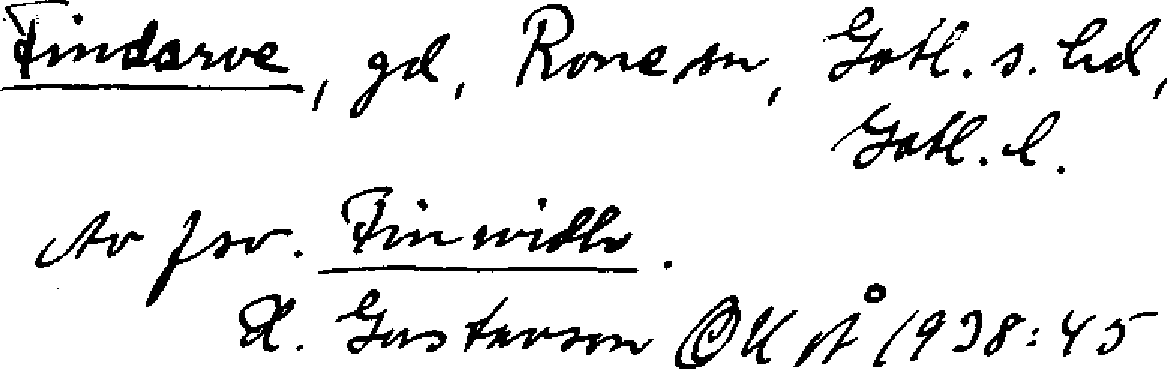 Findarve, gd, Rone sn, Gotl. s. hd,
Gotl. l.
Av fsv. Finvidh.
H. Gustavson GKÅ 1938:45